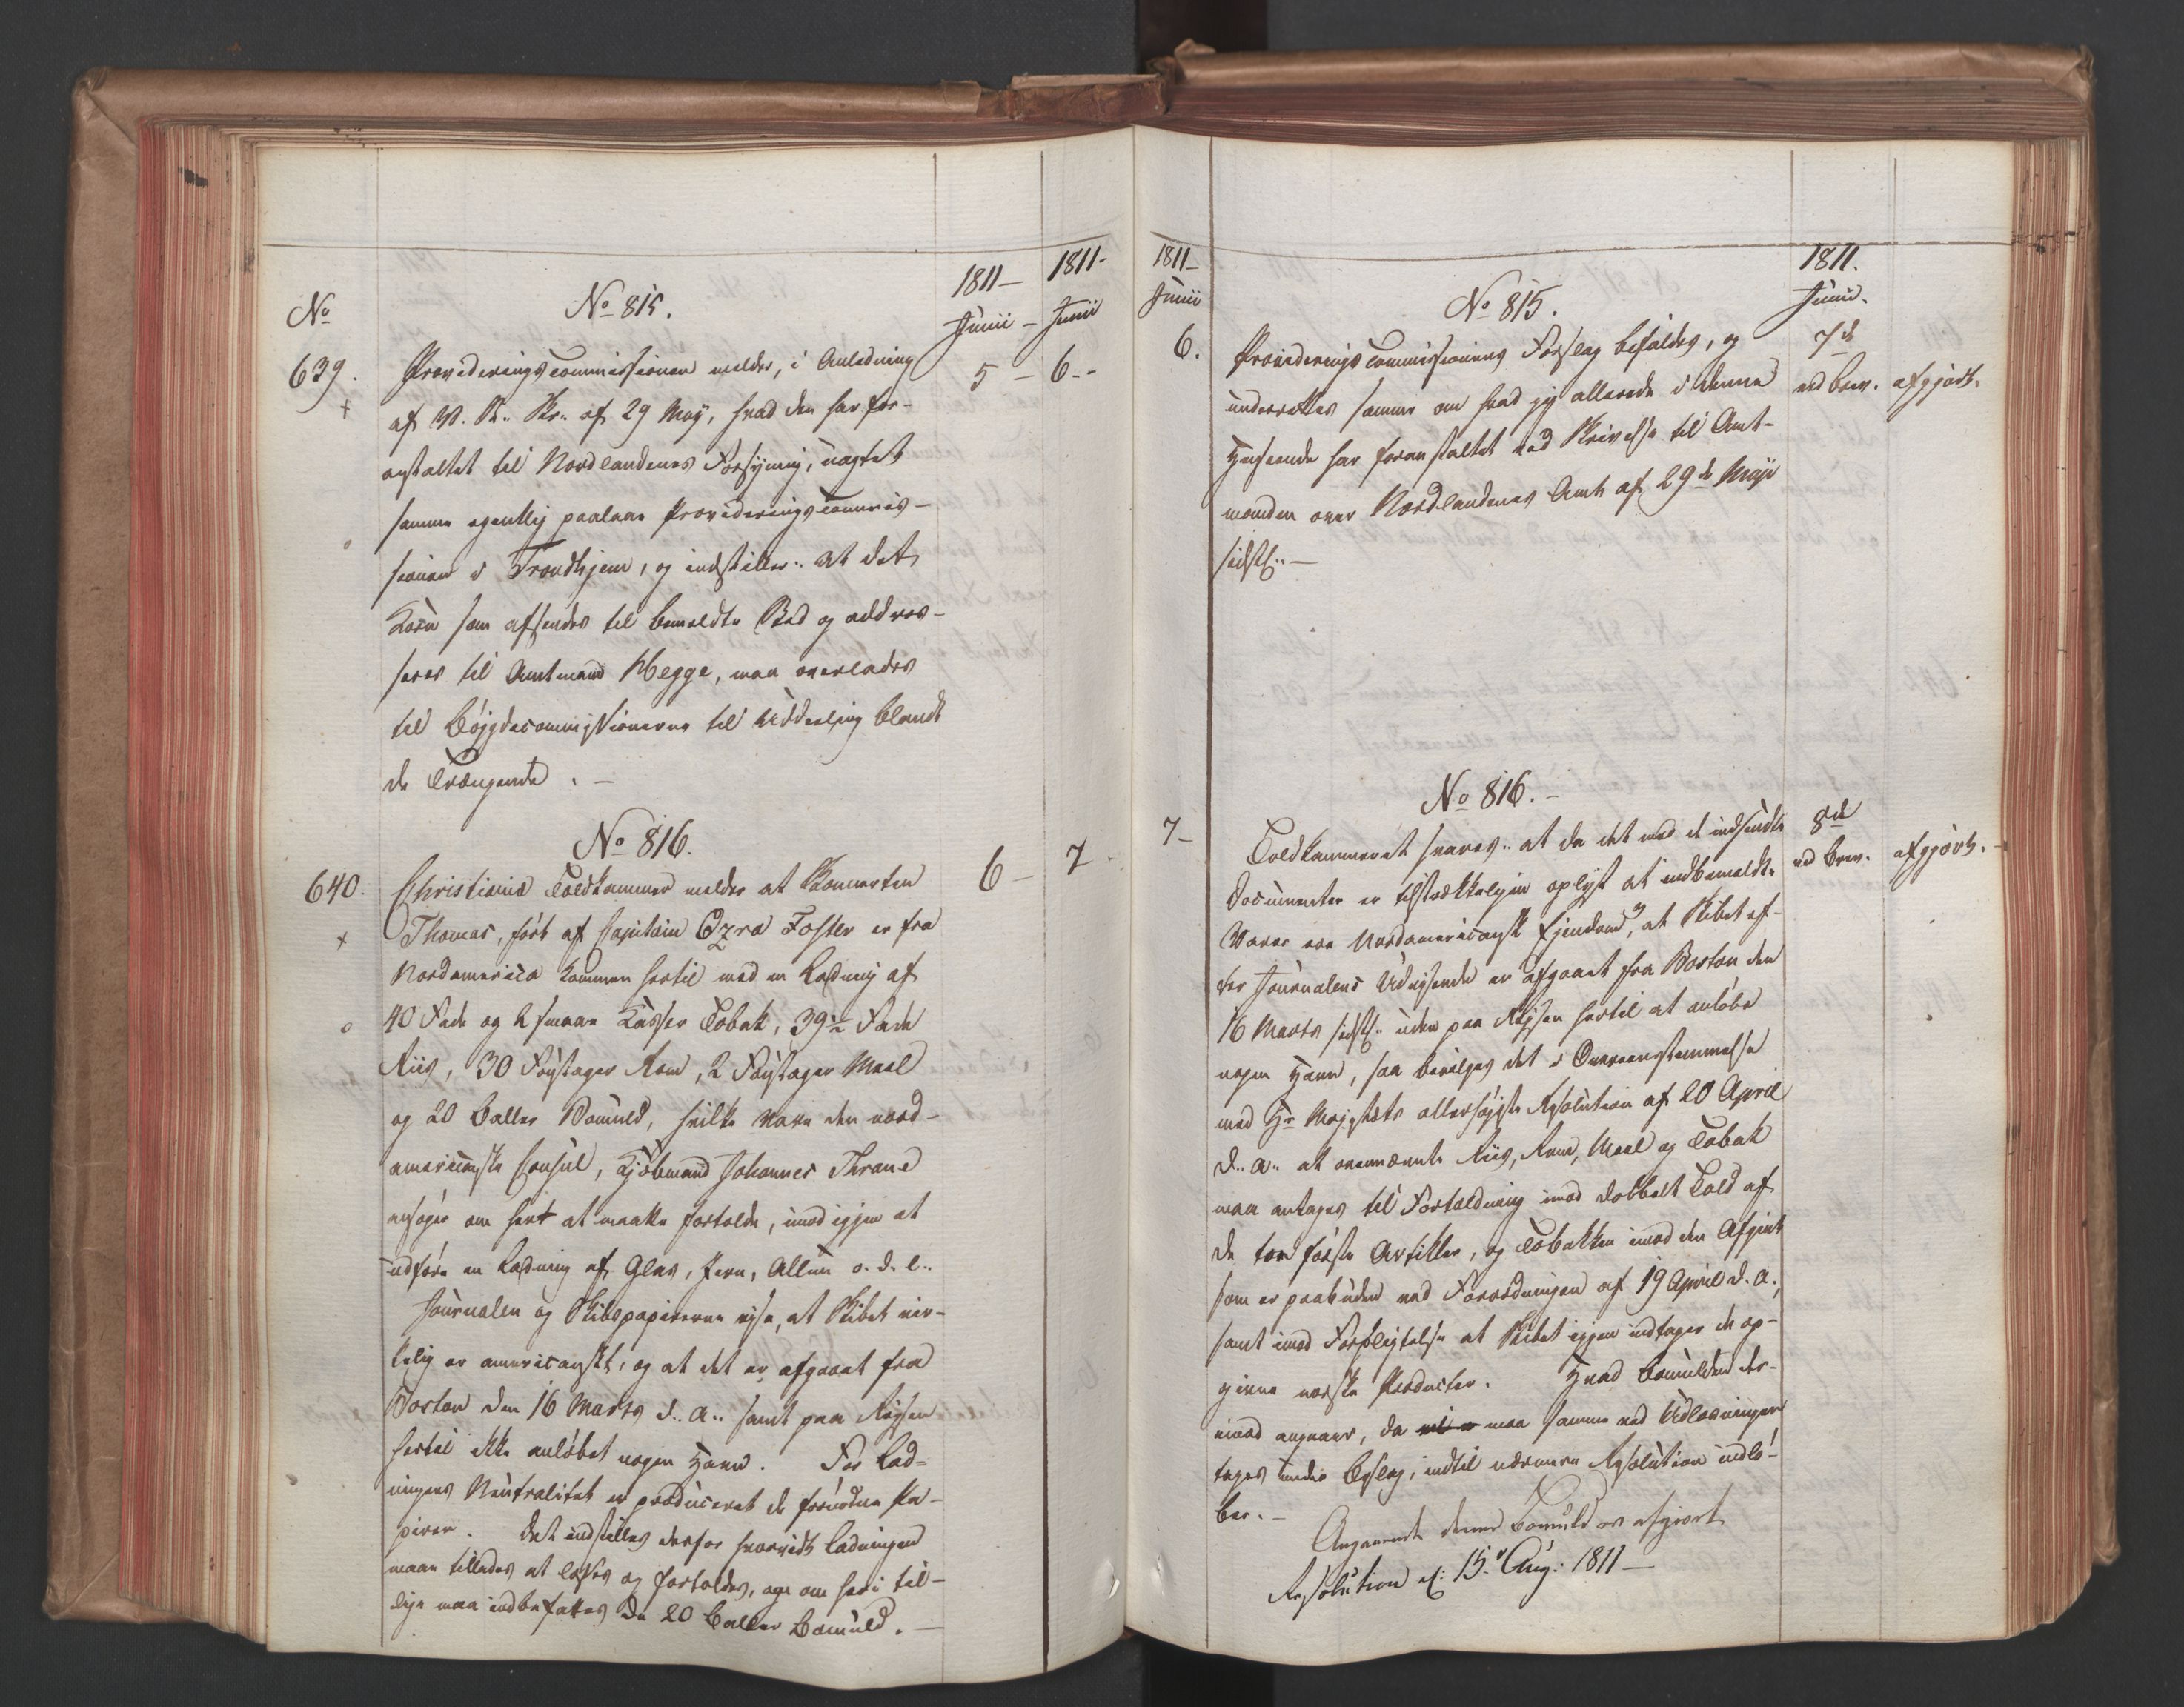 1811-
1811-
Junii - Junii
No
No 815.
639. Provideringscommissionen melder, i Anledning 5 - 6 -
af V. K. Kr. af 29 May, hvad den har for-
anstaltet til Nordlandenes Forsyning, uagtet
samme egentlig paalaae Provideringscommis-
sionen i Trondhjem, og indstiller: at det
Korn som afsendes til bemeldte Sted og addres-
seres til Amtmand Hegge, maa overlades
til Bøjgdecommissionerne til Uddeeling blandt
de Trængende. -
No 816.
640. Christiania Toldkammer melder at Skonnerten 6 - 7
Thomas, ført af Capitain Ezra Foster er fra
Nordamerica kommen hertil med en Ladning af
40 Fade og 2 smaae Kasser Tobak, 39½ Fade
Riis, 30 Foustager Rom, 2 Foustager Meel
og 20 Baller Bomuld, hvilke Varer den nord-
americanske Consul, Kjøbmand Johannes Thrane
ansøger om her at maatte fortolde, imod igjen at
udføre en Ladning af Glas, Jern, Allun o. d. l.
Journalen og Skibspapirerne vise, at Skibet vir-
kelig er americanskt, og at det er afgaaet fra
Boston den 16 Marts d. a. samt paa Rejsen
hertil ikke anløbet nogen Havn. For Lad-
ningens Neutralitet er produceret de fornødne Pa-
pirer. Det indstilles derfor hvorvidt Ladningen
maae tillades at losses og fortoldes, og om heri til-
lige maa indbefattes de 20 Baller Bomuld. -
1811-
Junii
1811.
Junii.
No 815.
6. Provideringscommissionens Forslag bifaldes, og 7de
underrettes samme om hvad jeg allerede i denne ved Brev. afgjort.
Henseende har foranstaltet ved Skrivelse til Amt-
manden over Nordlandenes Amt af 29de Maji
sidstl. -
No 816. -
7- Toldkammeret svares: at da det med de indsendte 8de
Documenter er tilstrækkeligen oplyst at indbemeldte ved Brev. afgjort. -
Varer ere Nordamericansk Ejendom, at Skibet ef-
ter Journalens Udvisende er afgaaet fra Boston den
16 Marts sidstl. uden paa Rejsen hertil at anløbe
nogen Havn, saa bevilges det i Overeenstemmelse
med Hs Majestets allerhøjeste Resolution af 20 April
d. a. at ovennævnte Riis, Rom, Meel og Tobak
maa antages til Fortoldning imod dobbelt Told af
de tre første Artikler, og Tobakken imod den Afgivt
som er paabuden ved Forordningen af 19 April d. A.,
samt imod Forpligtelse at Skibet igjen indtager de op-
givne norske Producter. Hvad Bomulden der-
imod angaaer, da maa samme ved Udlosningen
tages under Beslag, indtil nærmere Resolution indlø-
ber. -
Angaaende denne Bomuld er afgivet
Resolution d: 15de Aug: 1811 -